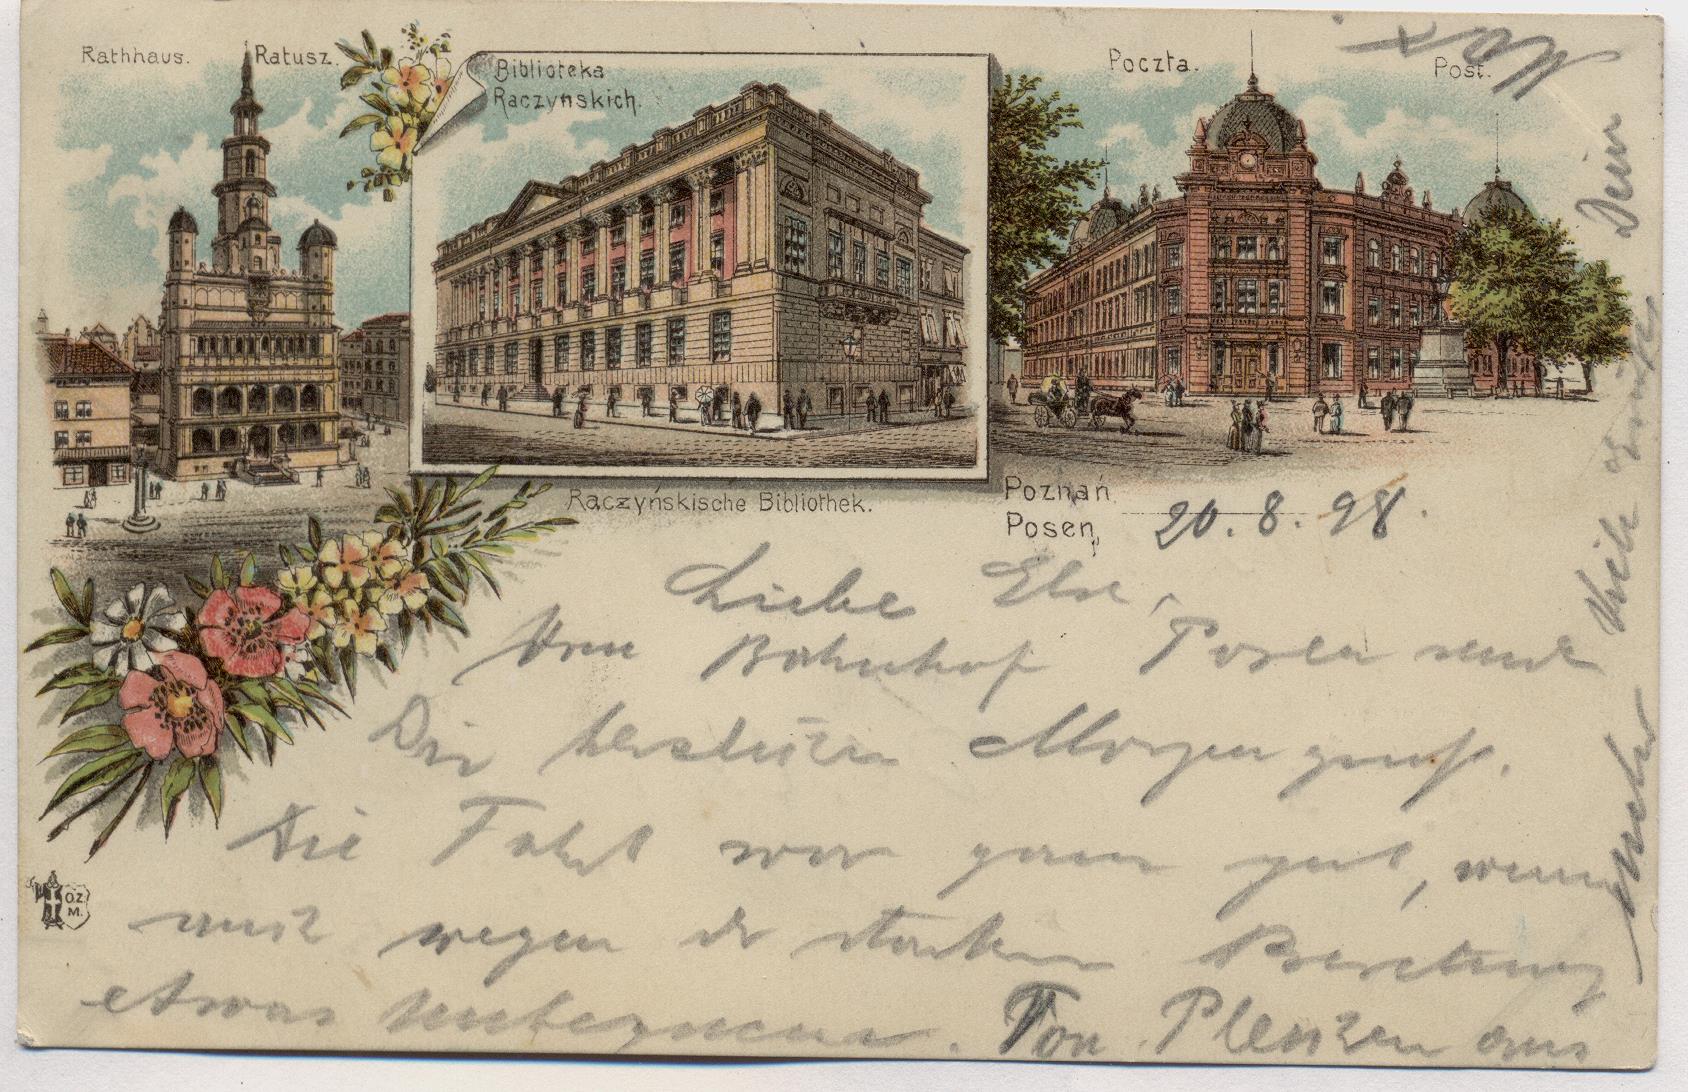 Rathhaus. Ratusz.
Biblioteka
Raczynskich.
Poczta. Post.
Raczyńskische Bibliothek.
Poznań
Posen, 20. 8. 98.
Liebe Else,
Vom Bahnhof Posen sende
Dir herzlichen Morgengruß.
Die Fahrt war ganz gut, wenn
auch wegen der starken Besetzung
etwas unbequem. Von aus
mehr Viele Grüße
Dein
Max
O.Z.
M.